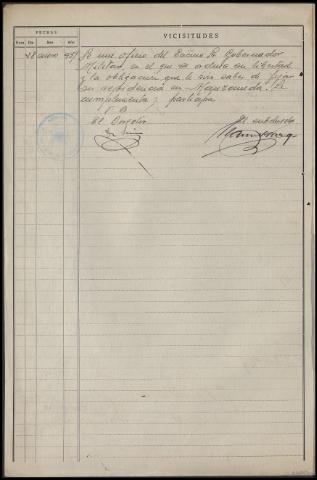 FECHAS
VICISITUDES
Hora Día Mes Año
28 enero
Se une oficio del Excmo Sr. Gobernador
Militar en el que se ordena en libertad
y la obligación que le hice saber de fijar
su residencia en Manzaneda. Se
cumplimenta y participa
V. B.
El Director
El subdirector